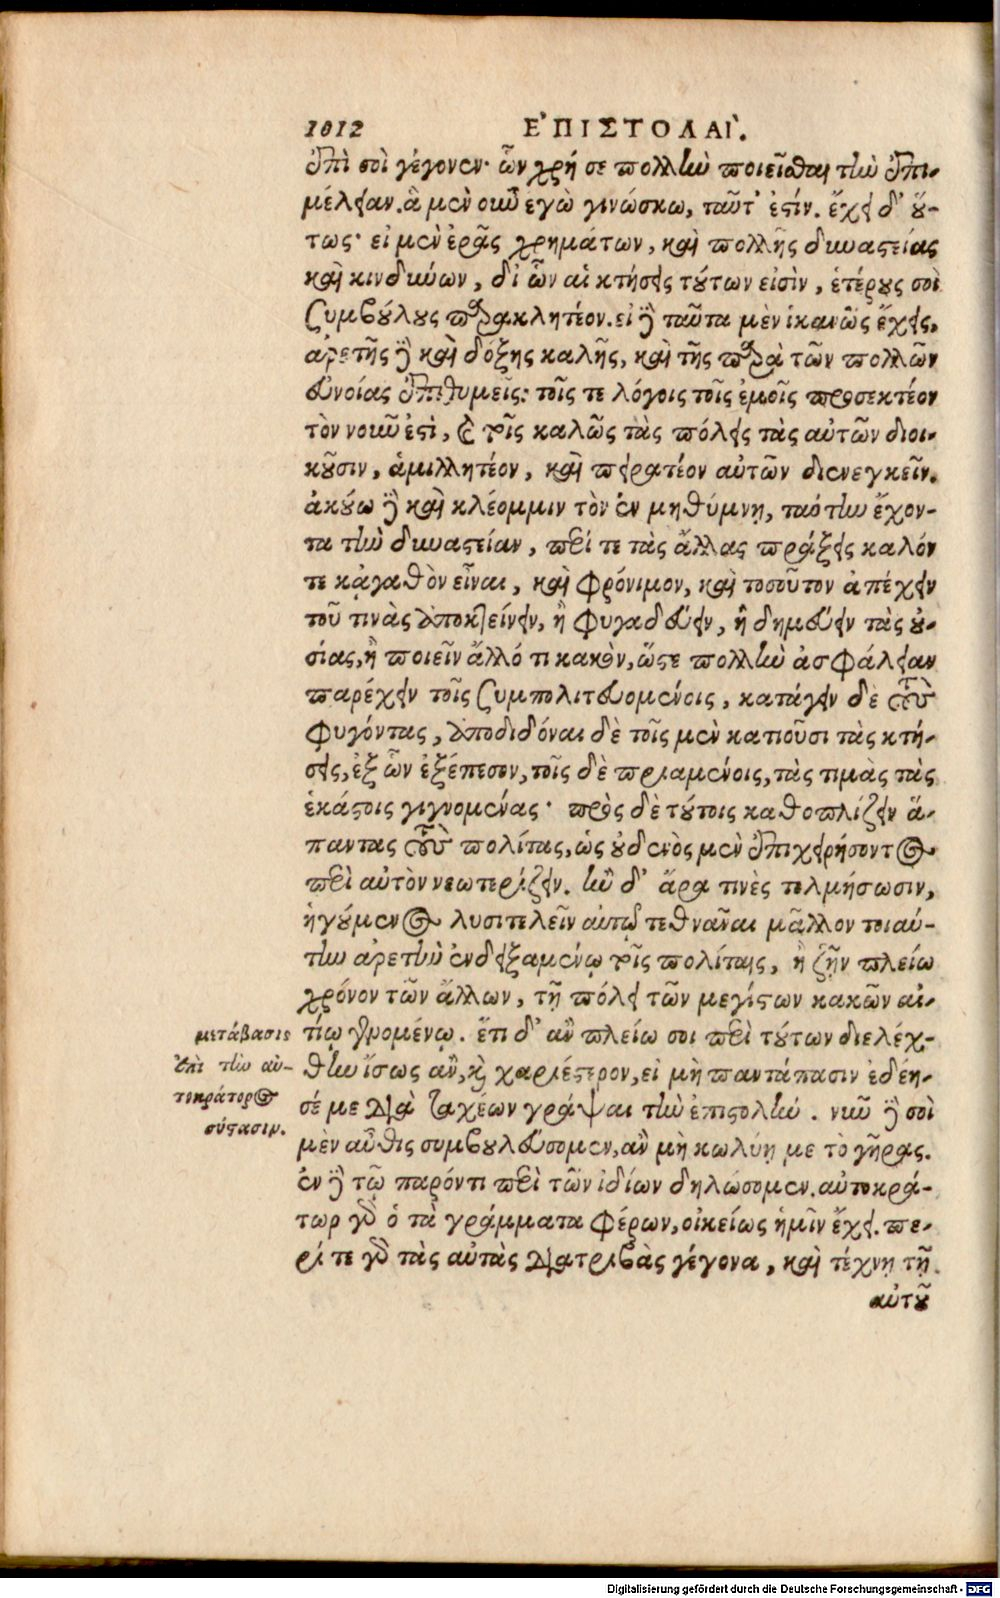 1012 ΕΠΙΣΤΟΛΑΙ.
ἐπὶ σοὶ γέγονεν· ὧν χρή σε πολλὴν ποιεῖσθαι τὴν ἐπι-
μέλειαν. ἃ μὲν οὖν ἐγὼ γινώσκω, ταῦτ' ἐστίν. ἔχει δ' οὕ-
τως· εἰ μὲν ἐρᾷς χρημάτων, καὶ πολλῆς δυναστείας
καὶ κινδύνων, δι' ὧν αἱ κτήσεις τούτων εἰσὶν, ἑτέρους σοὶ
ξυμβούλους παρακλητέον. εἰ δὲ ταῦτα μὲν ἱκανῶς ἔχεις,
ἀρετῆς δὲ καὶ δόξης καλῆς, καὶ τῆς παρὰ τῶν πολλῶν
εὐνοίας ἐπιθυμεῖς: τοῖς τε λόγοις τοῖς ἐμοῖς προσεκτέον
τὸν νοῦν ἐστὶ, καὶ τοῖς καλῶς τὰς πόλεις τὰς αὐτῶν διοι-
κοῦσιν, ἁμιλλητέον, καὶ πειρατέον αὐτῶν διενεγκεῖν.
ἀκούω δὲ καὶ κλέομμιν τὸν ἐν μηθύμνῃ, ταύτην ἔχον-
τα τὴν δυναστείαν, περί τε τὰς ἄλλας πράξεις καλόν
τε κἀγαθὸν εἶναι, καὶ φρόνιμον, καὶ τοσοῦτον ἀπέχειν
τοῦ τινὰς ἀποκτείνειν, ἢ φυγαδεύειν, ἢ δημεύειν τὰς οὐ-
σίας, ἢ ποιεῖν ἄλλό τι κακὸν, ὥστε πολλὴν ἀσφάλειαν
παρέχειν τοῖς ξυμπολιτευομένοις, κατάγειν δὲ τοὺς
φυγόντας, ἀποδιδόναι δὲ τοῖς μὲν κατιοῦσι τὰς κτή-
σεις, ἐξ ὧν ἐξέπεσον, τοῖς δὲ πριαμένοις, τὰς τιμὰς τὰς
ἑκάστοις γιγνομένας· πρὸς δὲ τούτοις καθοπλίζειν ἅ-
παντας τοὺς πολίτας, ὡς οὐδενὸς μὲν ἐπιχειρήσοντος
περὶ αὐτὸν νεωτερίζειν. ἢν δ' ἄρα τινὲς τολμήσωσιν,
ἡγούμενος λυσιτελεῖν αὐτῷ τεθνάναι μᾶλλον τοιαύ-
την ἀρετὴν ἐνδειξαμένῳ τοῖς πολίταις, ἢ ζῆν πλείω
χρόνον τῶν ἄλλων, τῇ πόλει τῶν μεγίστων κακῶν αἰ-
τίῳ γενομένῳ. ἔτι δ' ἂν πλείω σοι περὶ τούτων διελέχ-
θην ἴσως ἂν, καὶ χαριέστερον, εἰ μὴ παντάπασιν ἐδέη-
σέ με διὰ ταχέων γράψαι τὴν ἐπιστολήν. νῦν δὲ σοὶ
μὲν αὖθις συμβουλεύσομεν, ἂν μὴ κωλύῃ με τὸ γῆρας.
ἐν δὲ τῷ παρόντι περὶ τῶν ἰδίων δηλώσομεν. αὐτοκρά-
τωρ γὰρ ὁ τὰ γράμματα φέρων, οἰκείως ἡμῖν ἔχει. πε-
ρί τε γὰρ τὰς αὐτὰς διατριβὰς γέγονα, καὶ τέχνῃ τῇ
αὐτοῦ
μετάβασις
ἐπὶ τὴν αὐ-
τοκράτορος
σύστασιν.
Digitalisierung gefördert durch die Deutsche Forschungsgemeinschaft - DFG